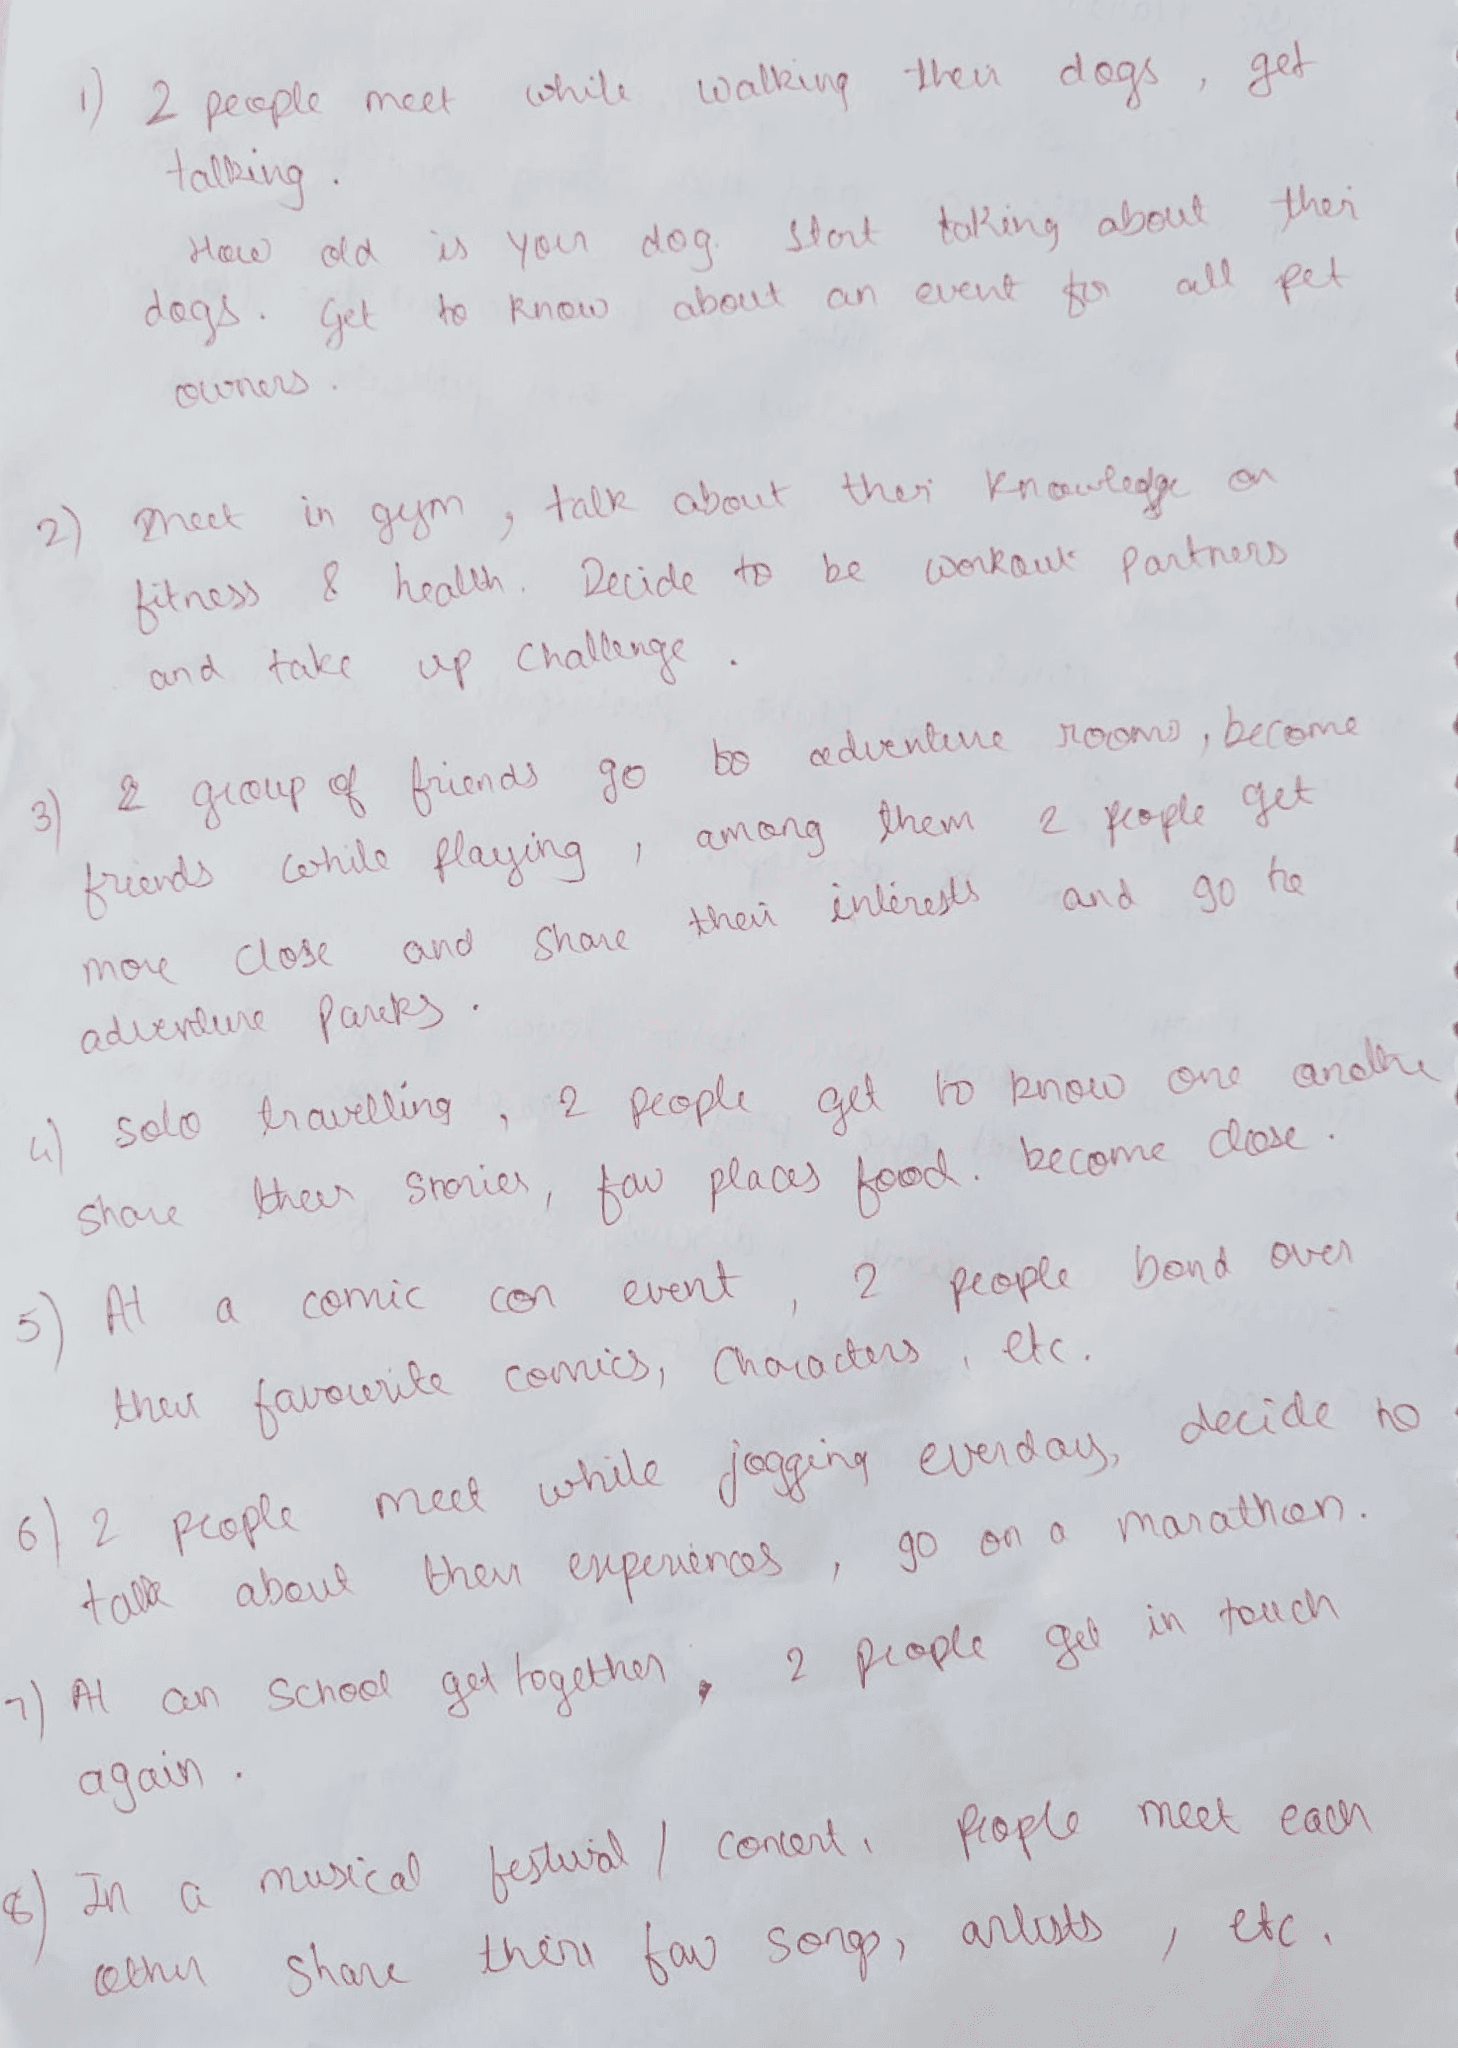 1) 2 people meet while walking their dogs, get
talking.
How old is your dog. Start talking about their
dogs. Get to know about an event for all pet
owners.
2) Meet in gym, talk about their knowledge on
fitness & health. Decide to be workout partners
and take up challenge.
3) 2 group of friends go to adventure rooms, become
friends while playing, among them 2 people get
more close and share their interests and go to
adventure parks.
4) Solo travelling, 2 people get to know one another
share their stories, fav places food. become close.
5) At a comic con event, 2 people bond over
their favourite comics, characters, etc.
6) 2 people meet while jogging everday, decide to
talk about their experiences, go on a marathon.
7) At an school get together, 2 people get in touch
again.
8) In a musical festival / concert, people meet each
other share their fav songs, artists, etc.